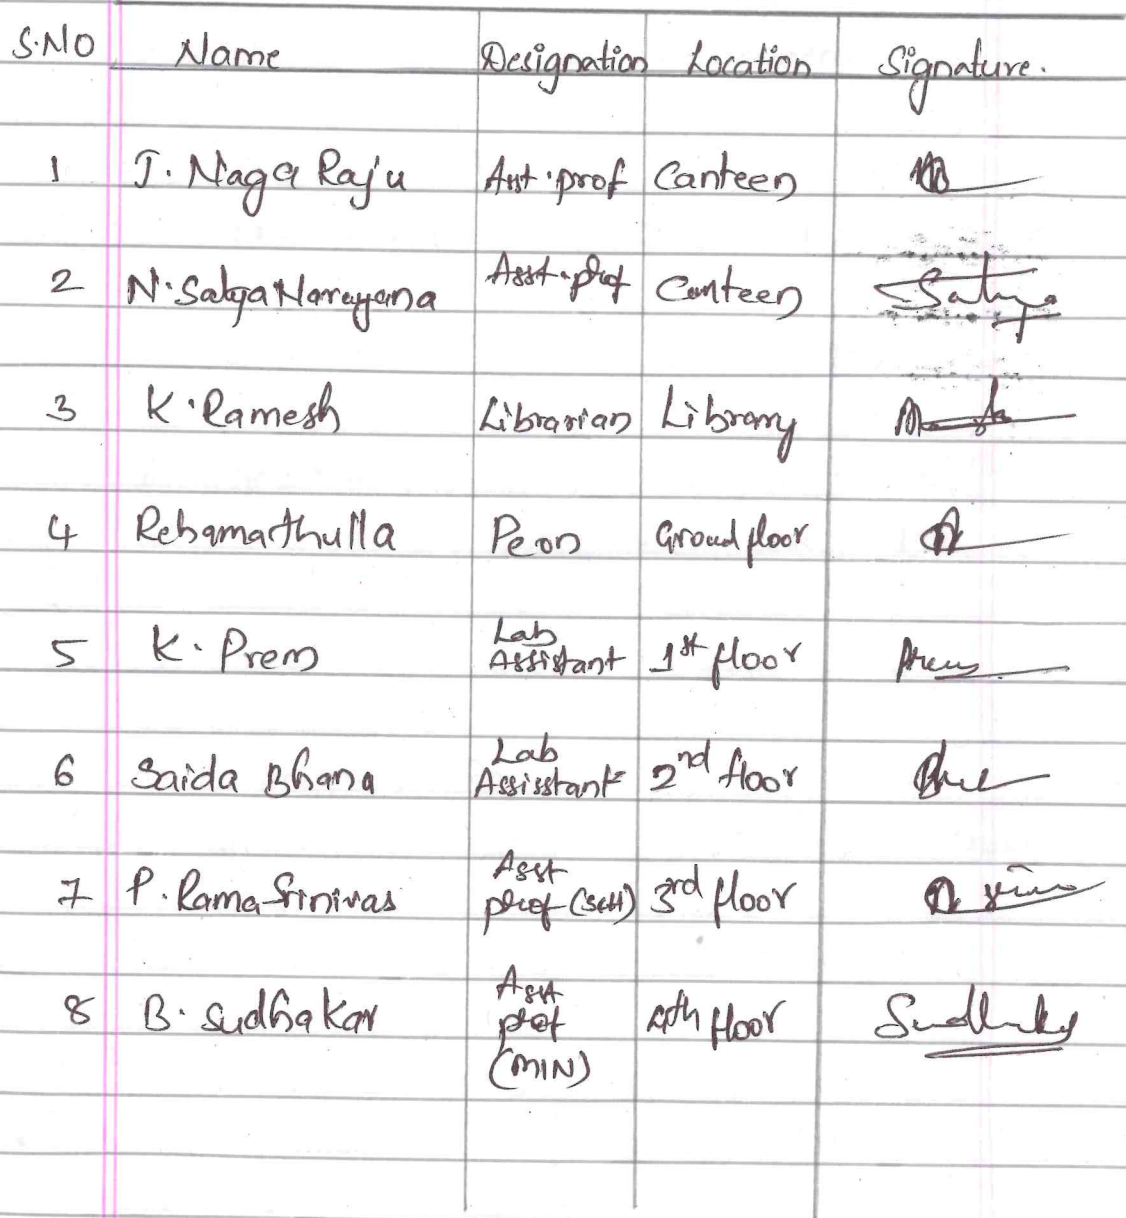 S.NO Name Designation Location Signature.
1 J. Naga Raju Asst. prof Canteen
2 N. Satya Narayana Asst. prof Canteen Satya
3 K. Ramesh Librarian Library
4 Rehamathulla Peon Groud floor
5 K. Prem Lab Assistant 1st floor Prem
6 Saida Bhana Lab Assisstant 2nd floor
7 P. Rama Srinivas Asst prof (S&H) 3rd floor
8 B. Sudhakar Asst prof (MIN) 4th floor Sudhakar